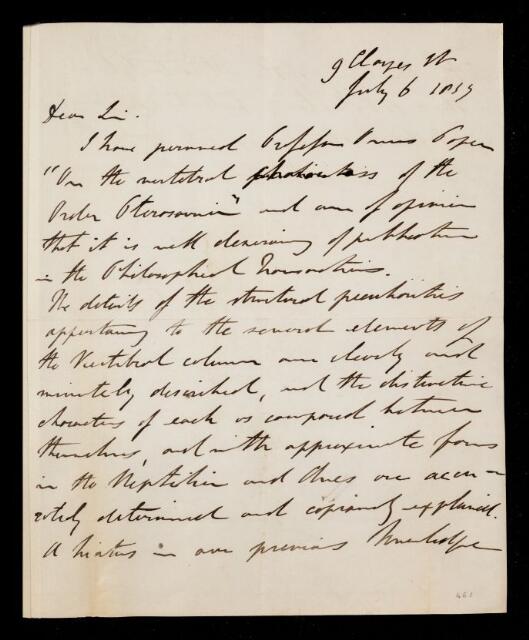 9 Clarges St
July 6 1859
Dear Sir.
I have perused Professor Owens Paper
"On the vertebral of the
Order Pterosauria" and am of opinion
that it is well deserving of publication
in the Philosophical Transactions.
The details of the structural peculiarities
appertaining to the several elements of
the Vertebral column are clearly and
minutely described, and the distinctive
characters of each as compared between
themselves, and with approximate forms
in the Reptilia and Aves are accu-
rately determined and copiously explained.
A hiatus in our previous knowledge
461